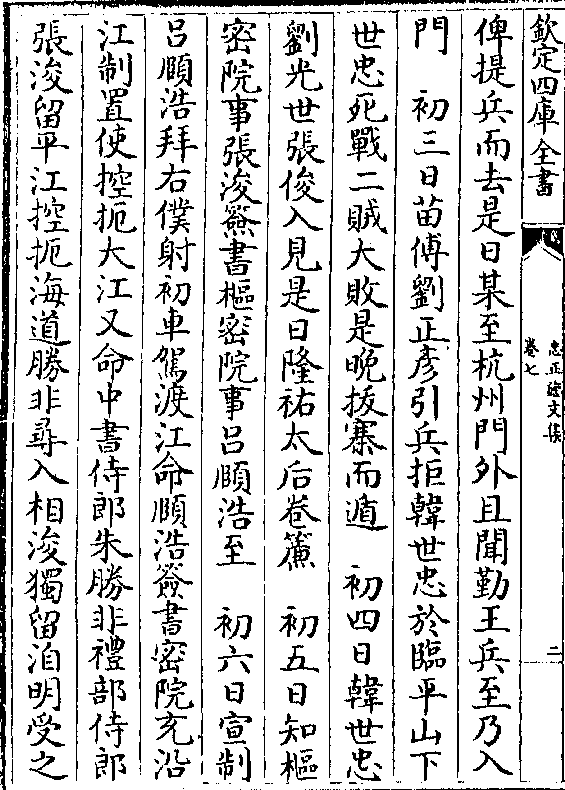 欽定四庫全書
忠正德文集
卷七
二
俾提兵而去是日某至杭州門外且聞勤王兵至乃入
門　初三日苗傅劉正彥引兵拒韓世忠於臨平山下
世忠死戰二賊大敗是晚拔寨而遁　初四日韓世忠
劉光世張俊入見是日隆祐太后卷簾　初五日知樞
密院事張浚簽書樞密院事呂頤浩至　初六日宣制
呂頤浩拜右僕射初車駕渡江命頤浩簽書密院充沿
江制置使控扼大江又命中書侍郎朱勝非禮部侍郎
張浚留平江控扼海道勝非尋入相浚獨留洎明受之